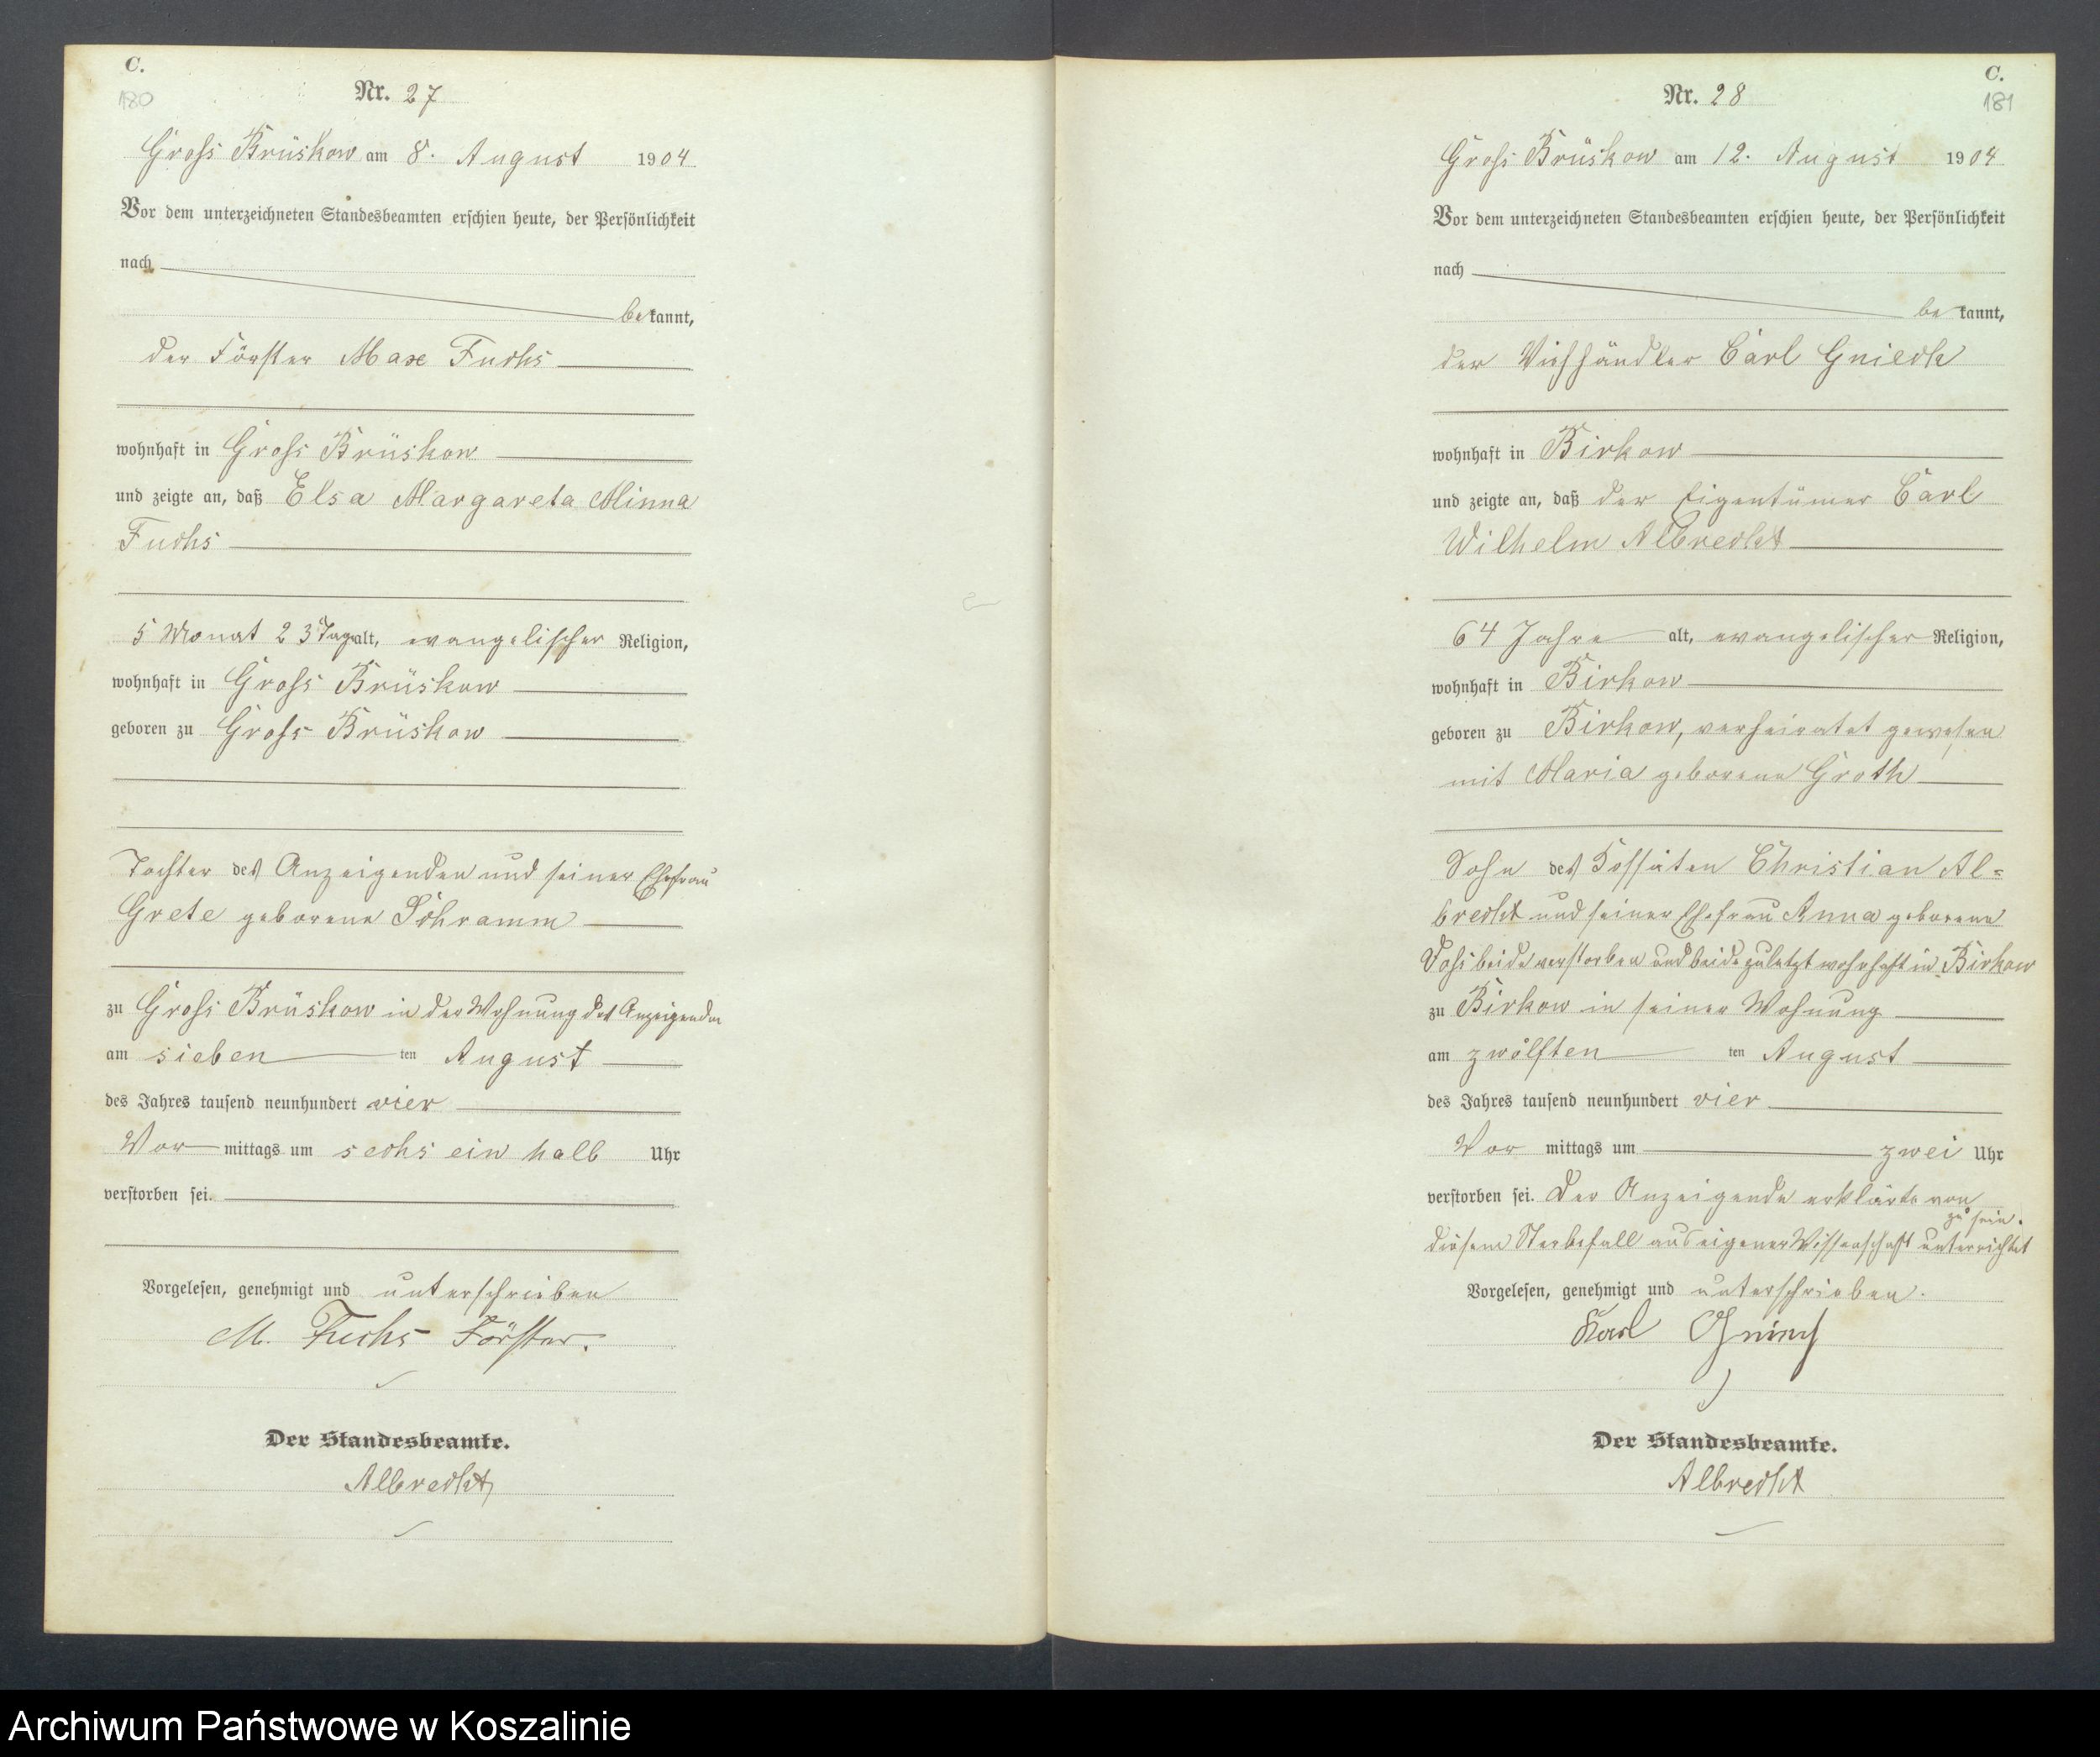 C.
180
Nr. 27
Gross Brüskow am 8. August 1904
Vor dem unterzeichneten Standesbeamten erschien heute, der Persönlichkeit
nach
bekannt,
der Förster Max Fuchs
wohnhaft in Gross Brüskow
und zeigte an, daß Elsa Margareta Minna
Fuchs
5 Monat 23 Tage alt, evangelischer Religion,
wohnhaft in Gross Brüskow
geboren zu Gross Brüskow
Tochter des Anzeigenden und seiner Ehefrau
Grete geborene Schramm
zu Gross Brüskow in der Wohnung des Anzeigenden
am sieben ten August
des Jahres tausend neunhundert vier
Vor mittags um sechs ein halb Uhr
verstorben sei.
Vorgelesen, genehmigt und unterschrieben
M. Fuchs Förster.
Der Standesbeamte.
Albrecht
C.
181
Nr. 28
Gross Brüskow am 12. August 1904
Vor dem unterzeichneten Standesbeamten erschien heute, der Persönlichkeit
nach
bekannt,
der Viehhändler Carl Gniech
wohnhaft in Birkow
und zeigte an, daß der Eigentümer Carl
Wilhelm Albrecht
64 Jahre alt, evangelischer Religion,
wohnhaft in Birkow
geboren zu Birkow, verheiratet gewesen
mit Maria geborene Groth
Sohn des Kossäten Christian Al=
brecht und seiner Ehefrau Anna geborene
Voss beide verstorben und beide zuletzt wohnhaft in Birkow
zu Birkow in seiner Wohnung
am zwölften ten August
des Jahres tausend neunhundert vier
Vor mittags um zwei Uhr
verstorben sei. Der Anzeigende erklärte von
diesem Sterbefall aus eigener Wissenschaft unterrichtet
zu sein.
Vorgelesen, genehmigt und unterschrieben.
Karl Gniech
Der Standesbeamte.
Albrecht
Archiwum Państwowe w Koszalinie